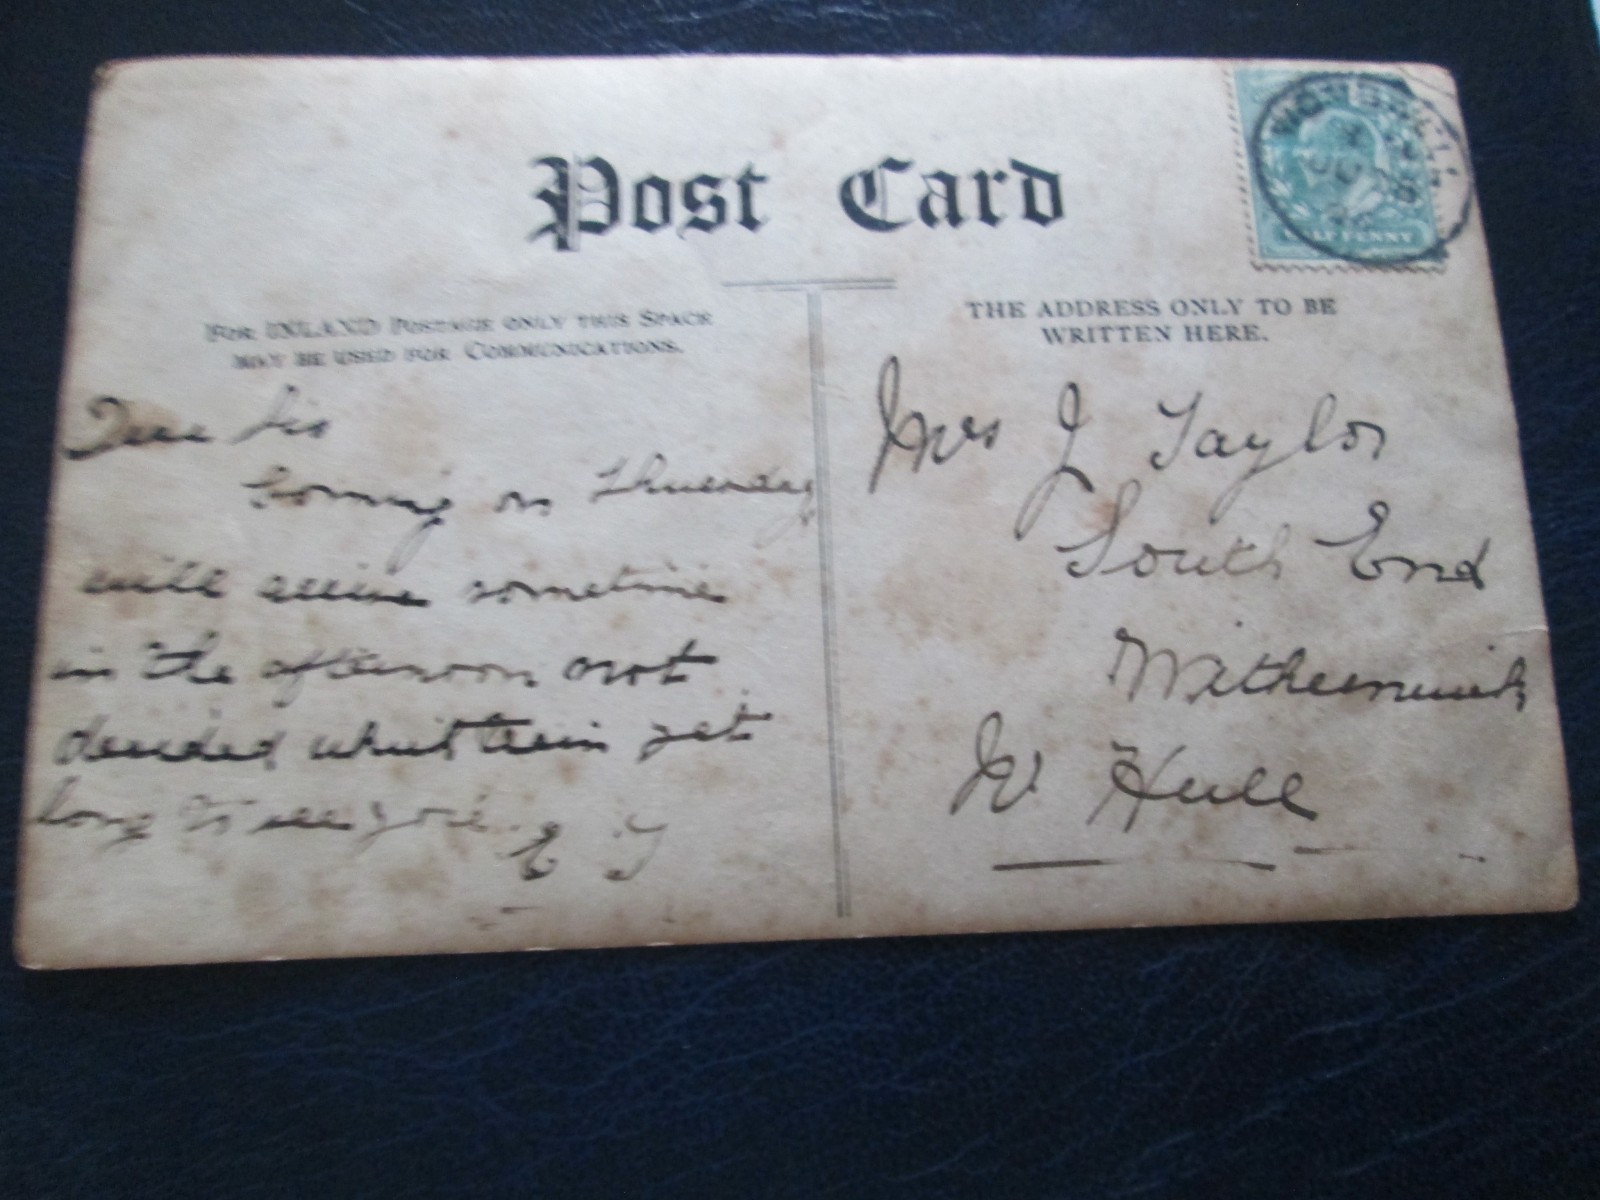 Post Card
FOR INLAND POSTAGE ONLY THIS SPACE
MAY BE USED FOR COMMUNICATIONS.
THE ADDRESS ONLY TO BE
WRITTEN HERE.
HALFPENNY
Dear Sis
Coming on Thursday
will arrive sometime
in the afternoon not
decided what train yet
long to see you.
E T
Mrs J Taylor
South End
Withernwick
N. Hull